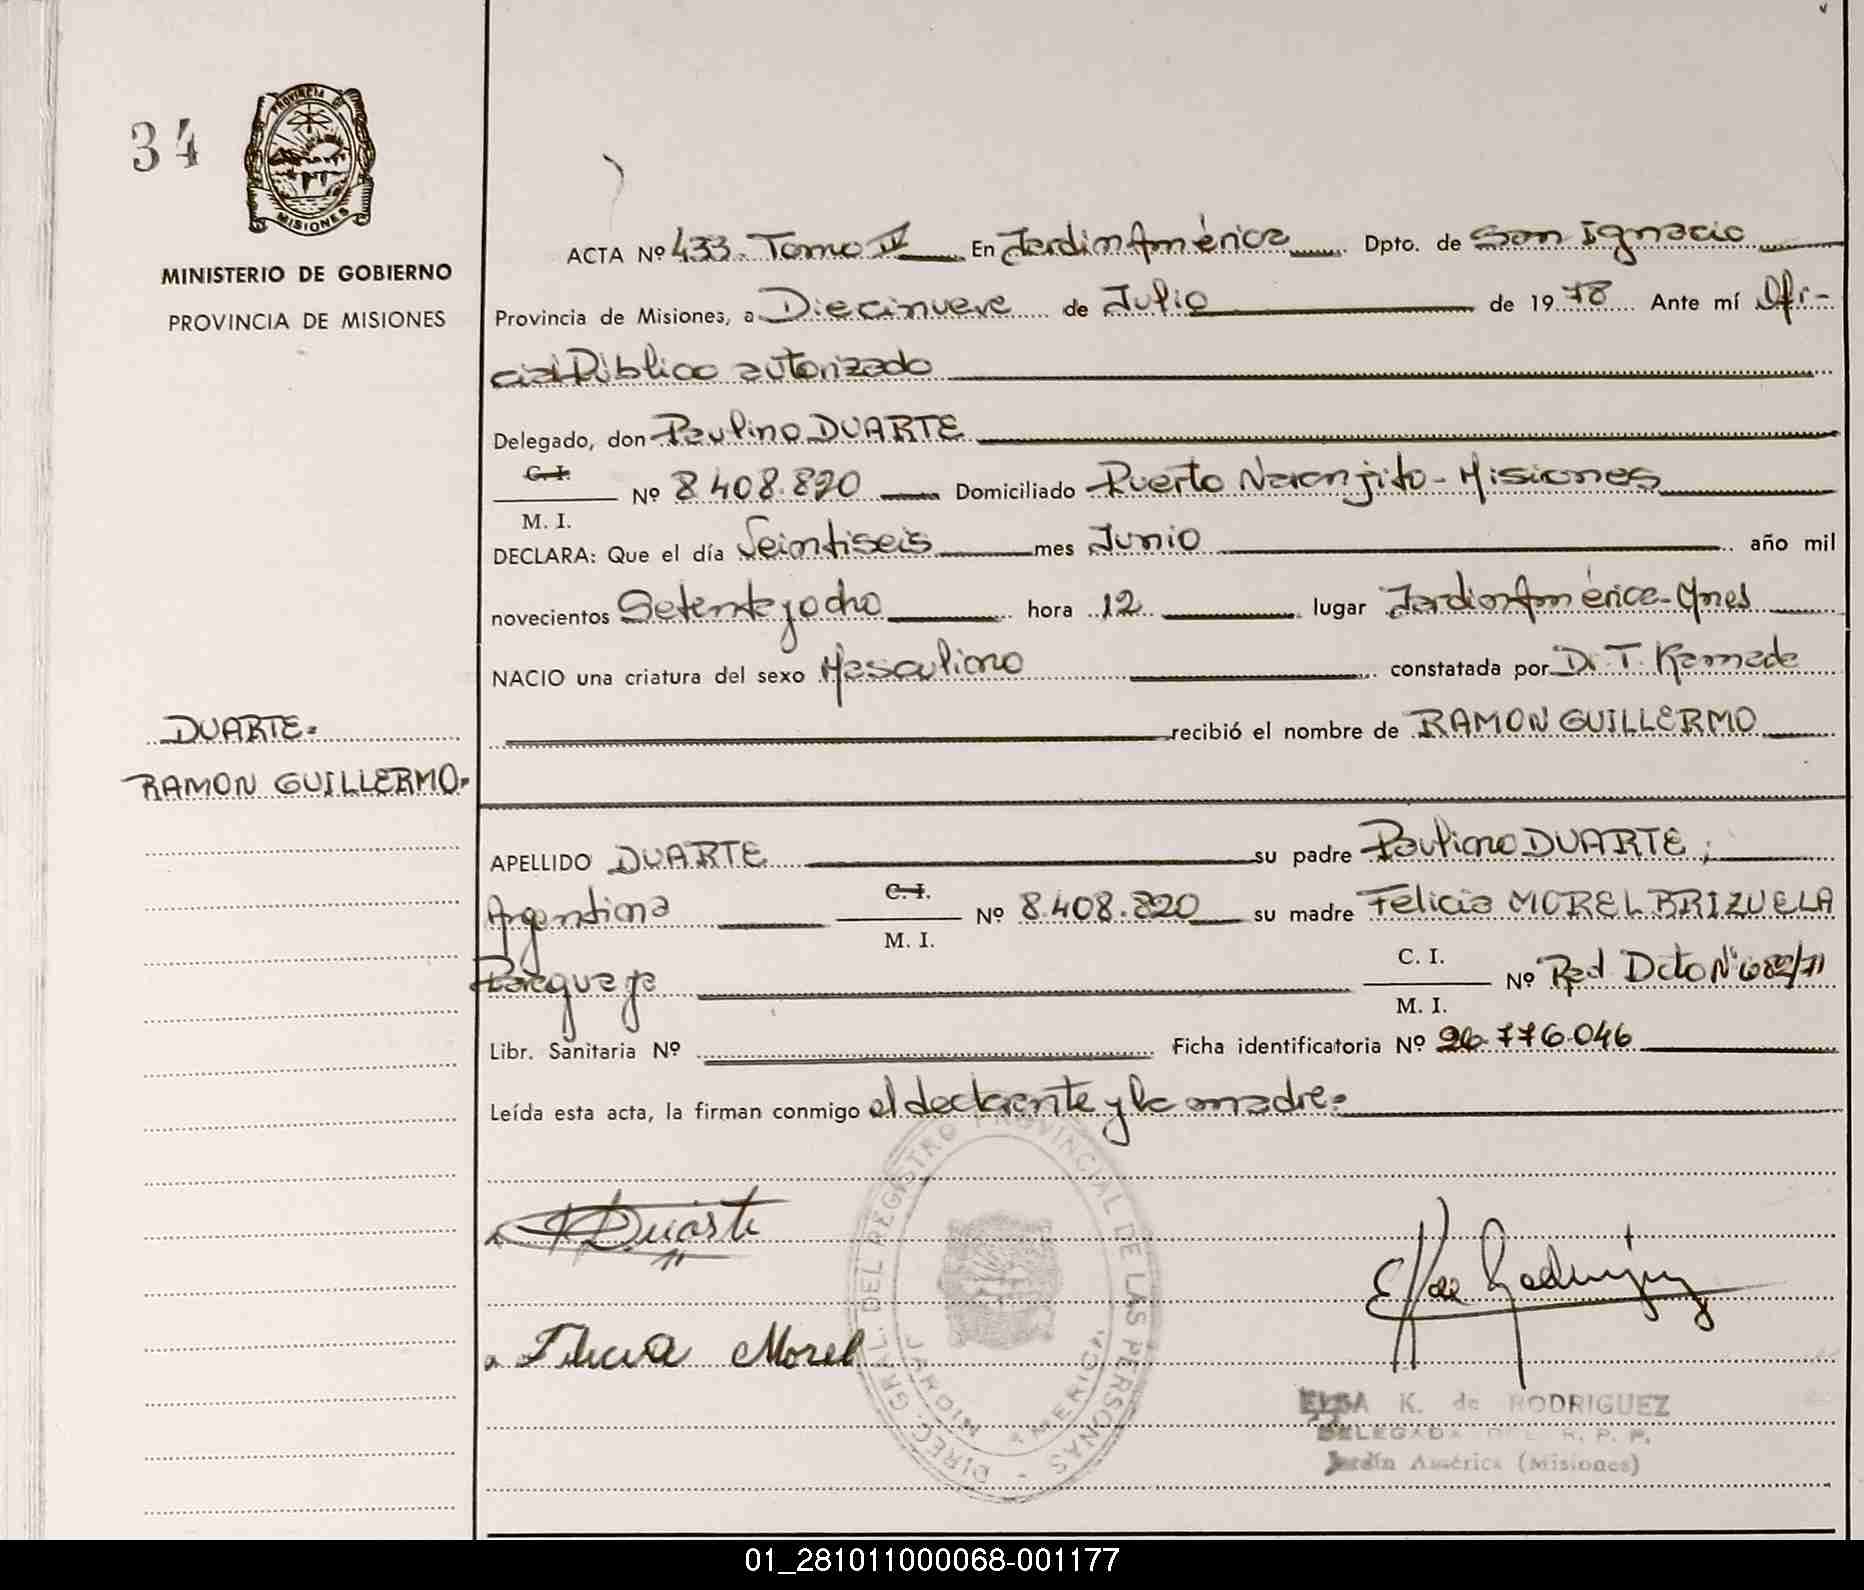 34
PROVINCIA DE
MISIONES
MINISTERIO DE GOBIERNO
PROVINCIA DE MISIONES
DUARTE=
RAMON GUILLERMO=
ACTA Nº 433. Tomo IV En Jardin América Dpto. de San Ignacio
Provincia de Misiones, a Diecinueve de Julio de 1978 Ante mí Ofi-
cial Público autorizado
Delegado, don Paulino DUARTE
C. I.
Nº 8 408.820 Domiciliado Puerto Naranjito - Misiones
M. I.
DECLARA: Que el día Veintiseis mes Junio año mil
novecientos Setenta y ocho hora 12 lugar Jardin América - Mnes
NACIO una criatura del sexo Masculino constatada por Dr. T. Kamada
recibió el nombre de RAMON GUILLERMO
APELLIDO DUARTE su padre Paulino DUARTE;
Argentina C. I. Nº 8.408.820 su madre Felicia MOREL BRIZUELA
M. I.
Paraguaya C. I. Nº Rad Dcto Nº 682/71
M. I.
Libr. Sanitaria Nº Ficha identificatoria Nº 26.776.046
Leída esta acta, la firman conmigo el declarante y la madre=
Duarte
Felicia Morel
DIREC. GRAL. DEL REGISTRO PROVINCIAL DE LAS PERSONAS -
JARDIN AMERICA
E K de Rodriguez
ELSA K. de RODRIGUEZ
DELEGADA DEL R. P. P.
Jardín América (Misiones)
01_281011000068-001177